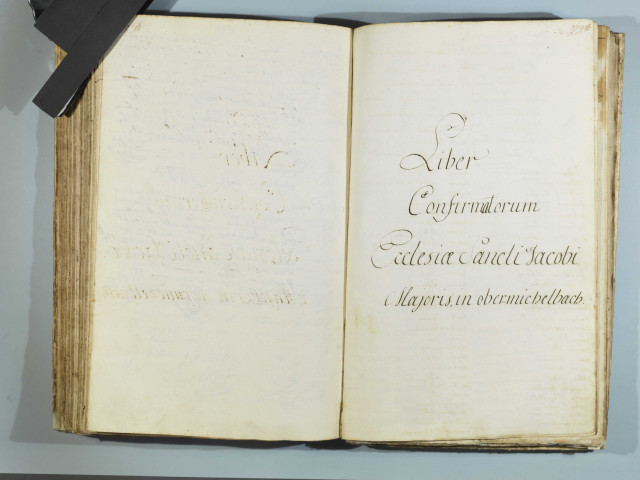 Liber
Confirmatorum
Ecclesiæ Sancti Jacobi
Majoris, in obermichelbach.